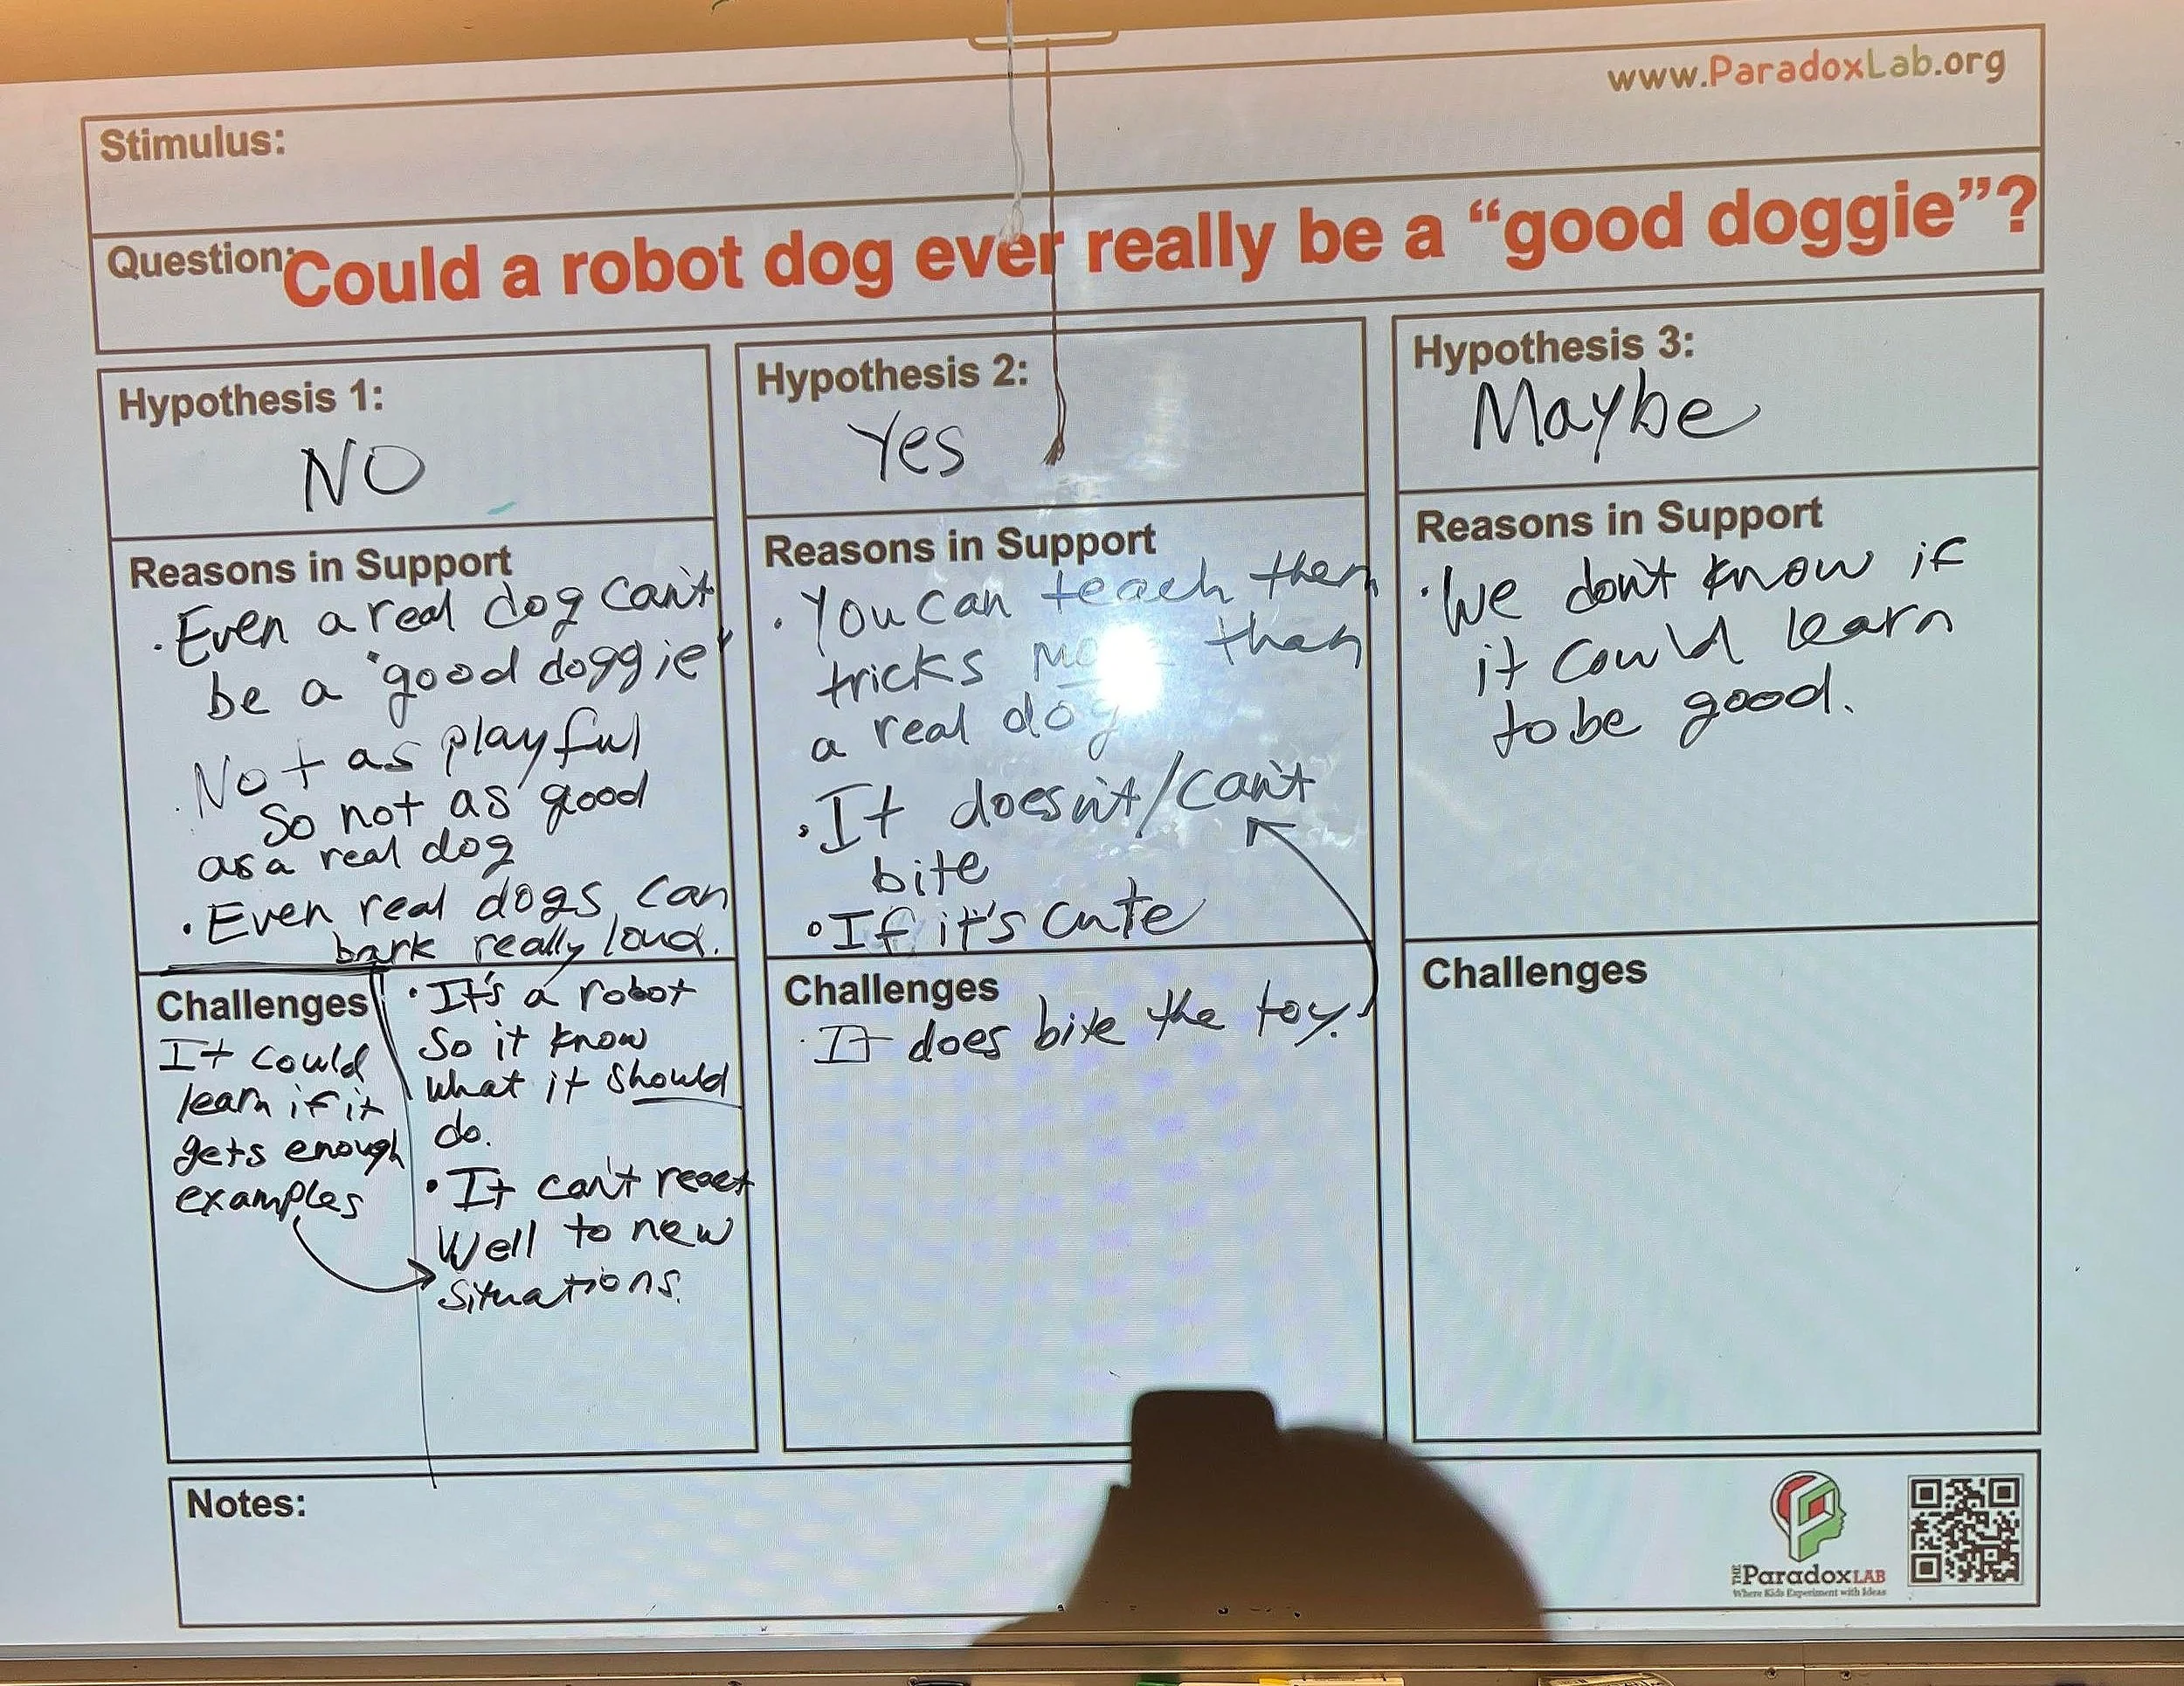 www.ParadoxLab.org
Stimulus:
Question:
Could a robot dog ever really be a “good doggie”?
Hypothesis 1:
NO
Reasons in Support
· Even a real dog can't
be a "good doggie"
· Not as playful
so not as good
as a real dog
· Even real dogs can
bark really loud.
Challenges
It could
learn if it
gets enough
examples
· It's a robot
so it know
what it should
do.
· It can't react
well to new
situations.
Hypothesis 2:
Yes
Reasons in Support
· You can teach them
tricks than
a real dog
· It doesn't/can't
bite
· If it's cute
Challenges
· It does bite the toy.
Hypothesis 3:
Maybe
Reasons in Support
· We don't know if
it could learn
to be good.
Challenges
Notes:
THE
ParadoxLAB
Where Kids Experiment with Ideas